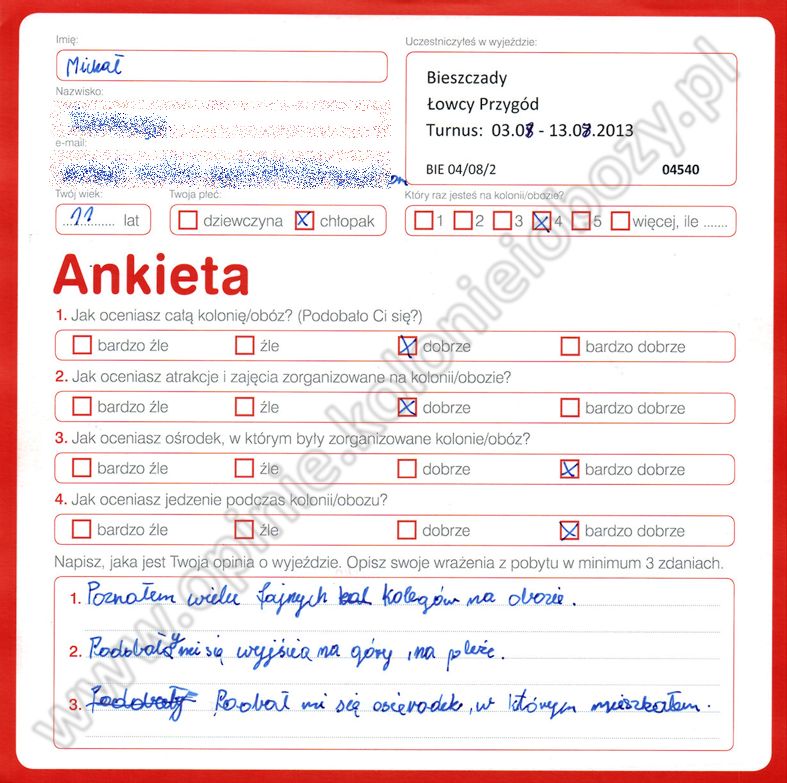 Imię:
Uczestniczyłeś w wyjeździe:
Michał
Bieszczady
Nazwisko:
Łowcy Przygód
Turnus: 03.08 - 13.08.2013
e-mail:
BIE 04/08/2 04540
Twój wiek:
Twoja płeć:
Który raz jesteś na kolonii/obozie?
11 lat
dziewczyna chłopak
1 2 3 4 5 więcej, ile .......
Ankieta
1. Jak oceniasz całą kolonię/obóz? (Podobało Ci się?)
bardzo źle źle dobrze bardzo dobrze
2. Jak oceniasz atrakcje i zajęcia zorganizowane na kolonii/obozie?
bardzo źle źle dobrze bardzo dobrze
3. Jak oceniasz ośrodek, w którym były zorganizowane kolonie/obóz?
bardzo źle źle dobrze bardzo dobrze
4. Jak oceniasz jedzenie podczas kolonii/obozu?
bardzo źle źle dobrze bardzo dobrze
Napisz, jaka jest Twoja opinia o wyjeździe. Opisz swoje wrażenia z pobytu w minimum 3 zdaniach.
1. Poznałem wielu fajnych kolegów na obozie.
2. Podobały mi się wyjścia na góry, na plażę.
3. Podobały Podobał mi się osierodek, w którym mieszkałem.
www.opinie.kolonieiobozy.pl